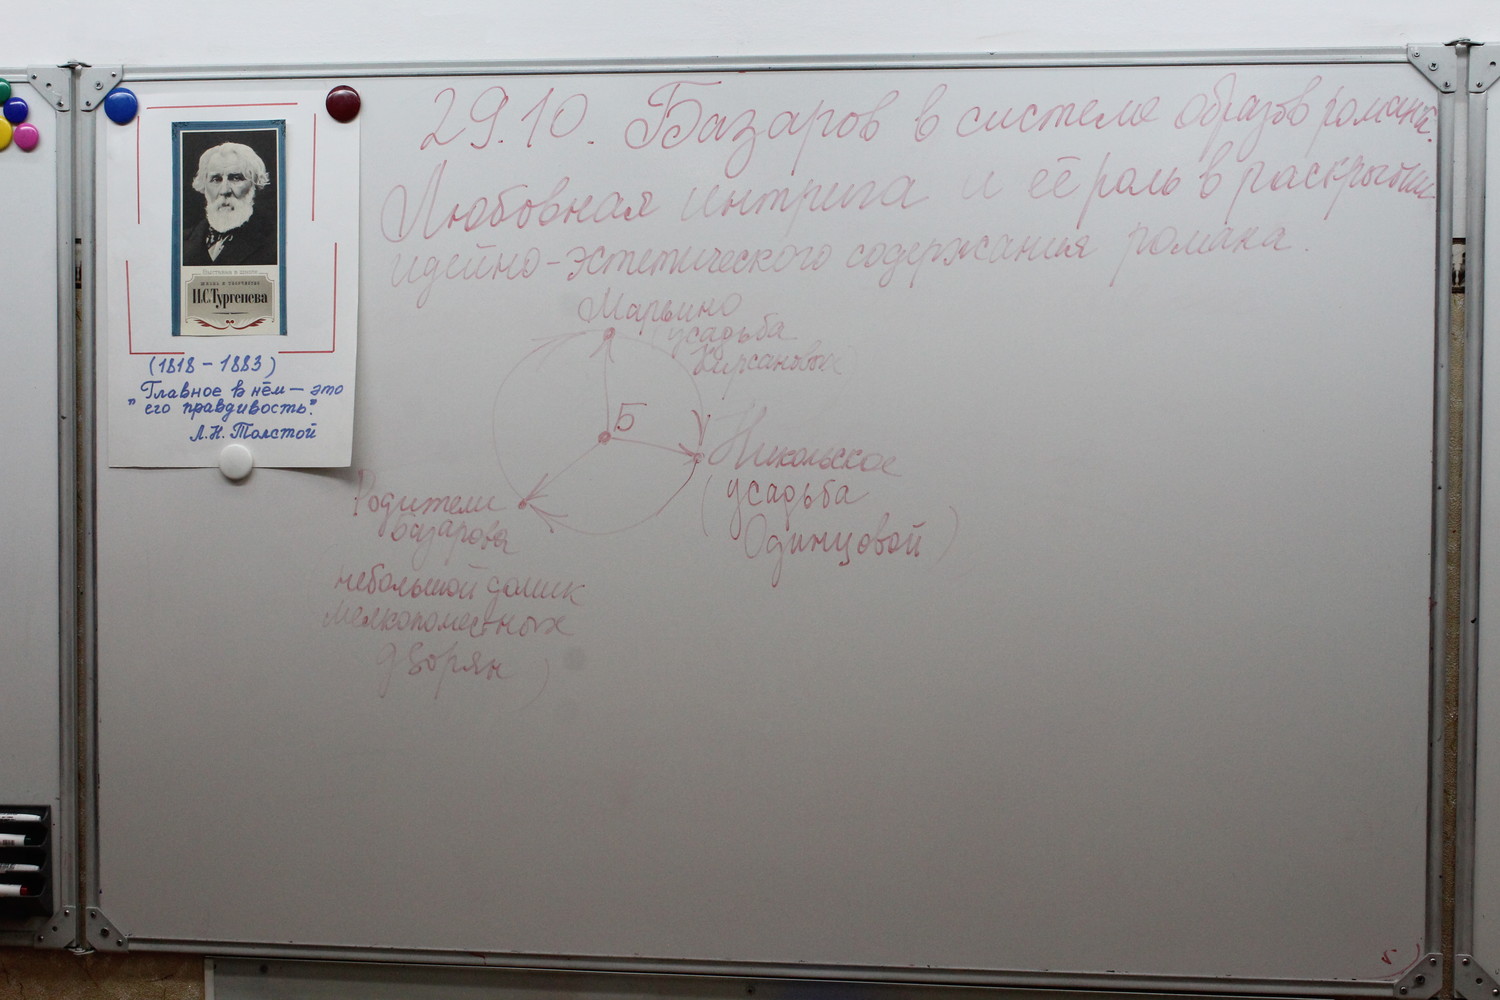 29.10. Базаров в системе образов романа.
Любовная интрига и её роль в раскрытии
идейно-эстетического содержания романа.
Выставка в школе
ЖИЗНЬ И ТВОРЧЕСТВО
И.С.Тургенева
(1818 - 1883)
"Главное в нём — это
его правдивость".
Л.Н. Толстой
Марьино
(усадьба
Кирсановых
Б
Никольское
(усадьба
Одинцовой)
Родители
Базарова
небольшой домик
мелкопоместных
дворян)